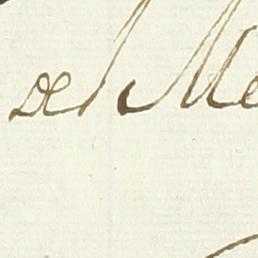 del Me